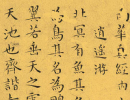 華真經内
逍遙遊
北冥有魚其名
為鳥其名為鵬
翼若垂天之雲
天池也齊諧